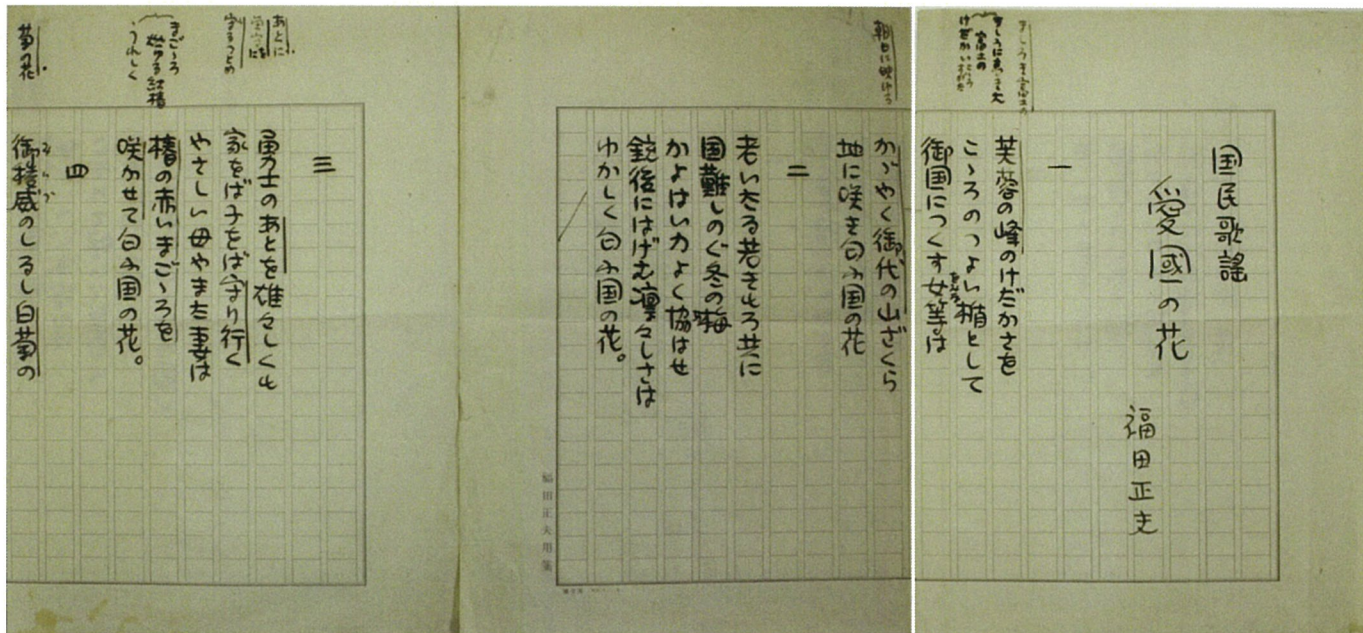 国民歌謡
愛國の花
福田正夫
一
芙蓉の峰のけだかさを
こゝろのつよい楯として
御国につくす女等は
をみなら
かゞやく御代の山ざくら
地に咲き匂ふ国の花
朝日に映ゆる
二
老いたる若きもろ共に
国難しのぐ冬の梅
かよはい力よく協はせ
銃後にはげむ凛々しさは
ゆかしく匂ふ国の花。
福田正夫用箋
三
勇士のあとを雄々しくも
家をば子をば守り行く
やさしい母やまた妻は
椿の赤いまごゝろを
咲かせて匂ふ国の花。
あとに
守るつとめ
まごゝろ
燃ゆる紅椿
うれしく
四
御稜威のしるし白菊の
みいづ
菊の花。